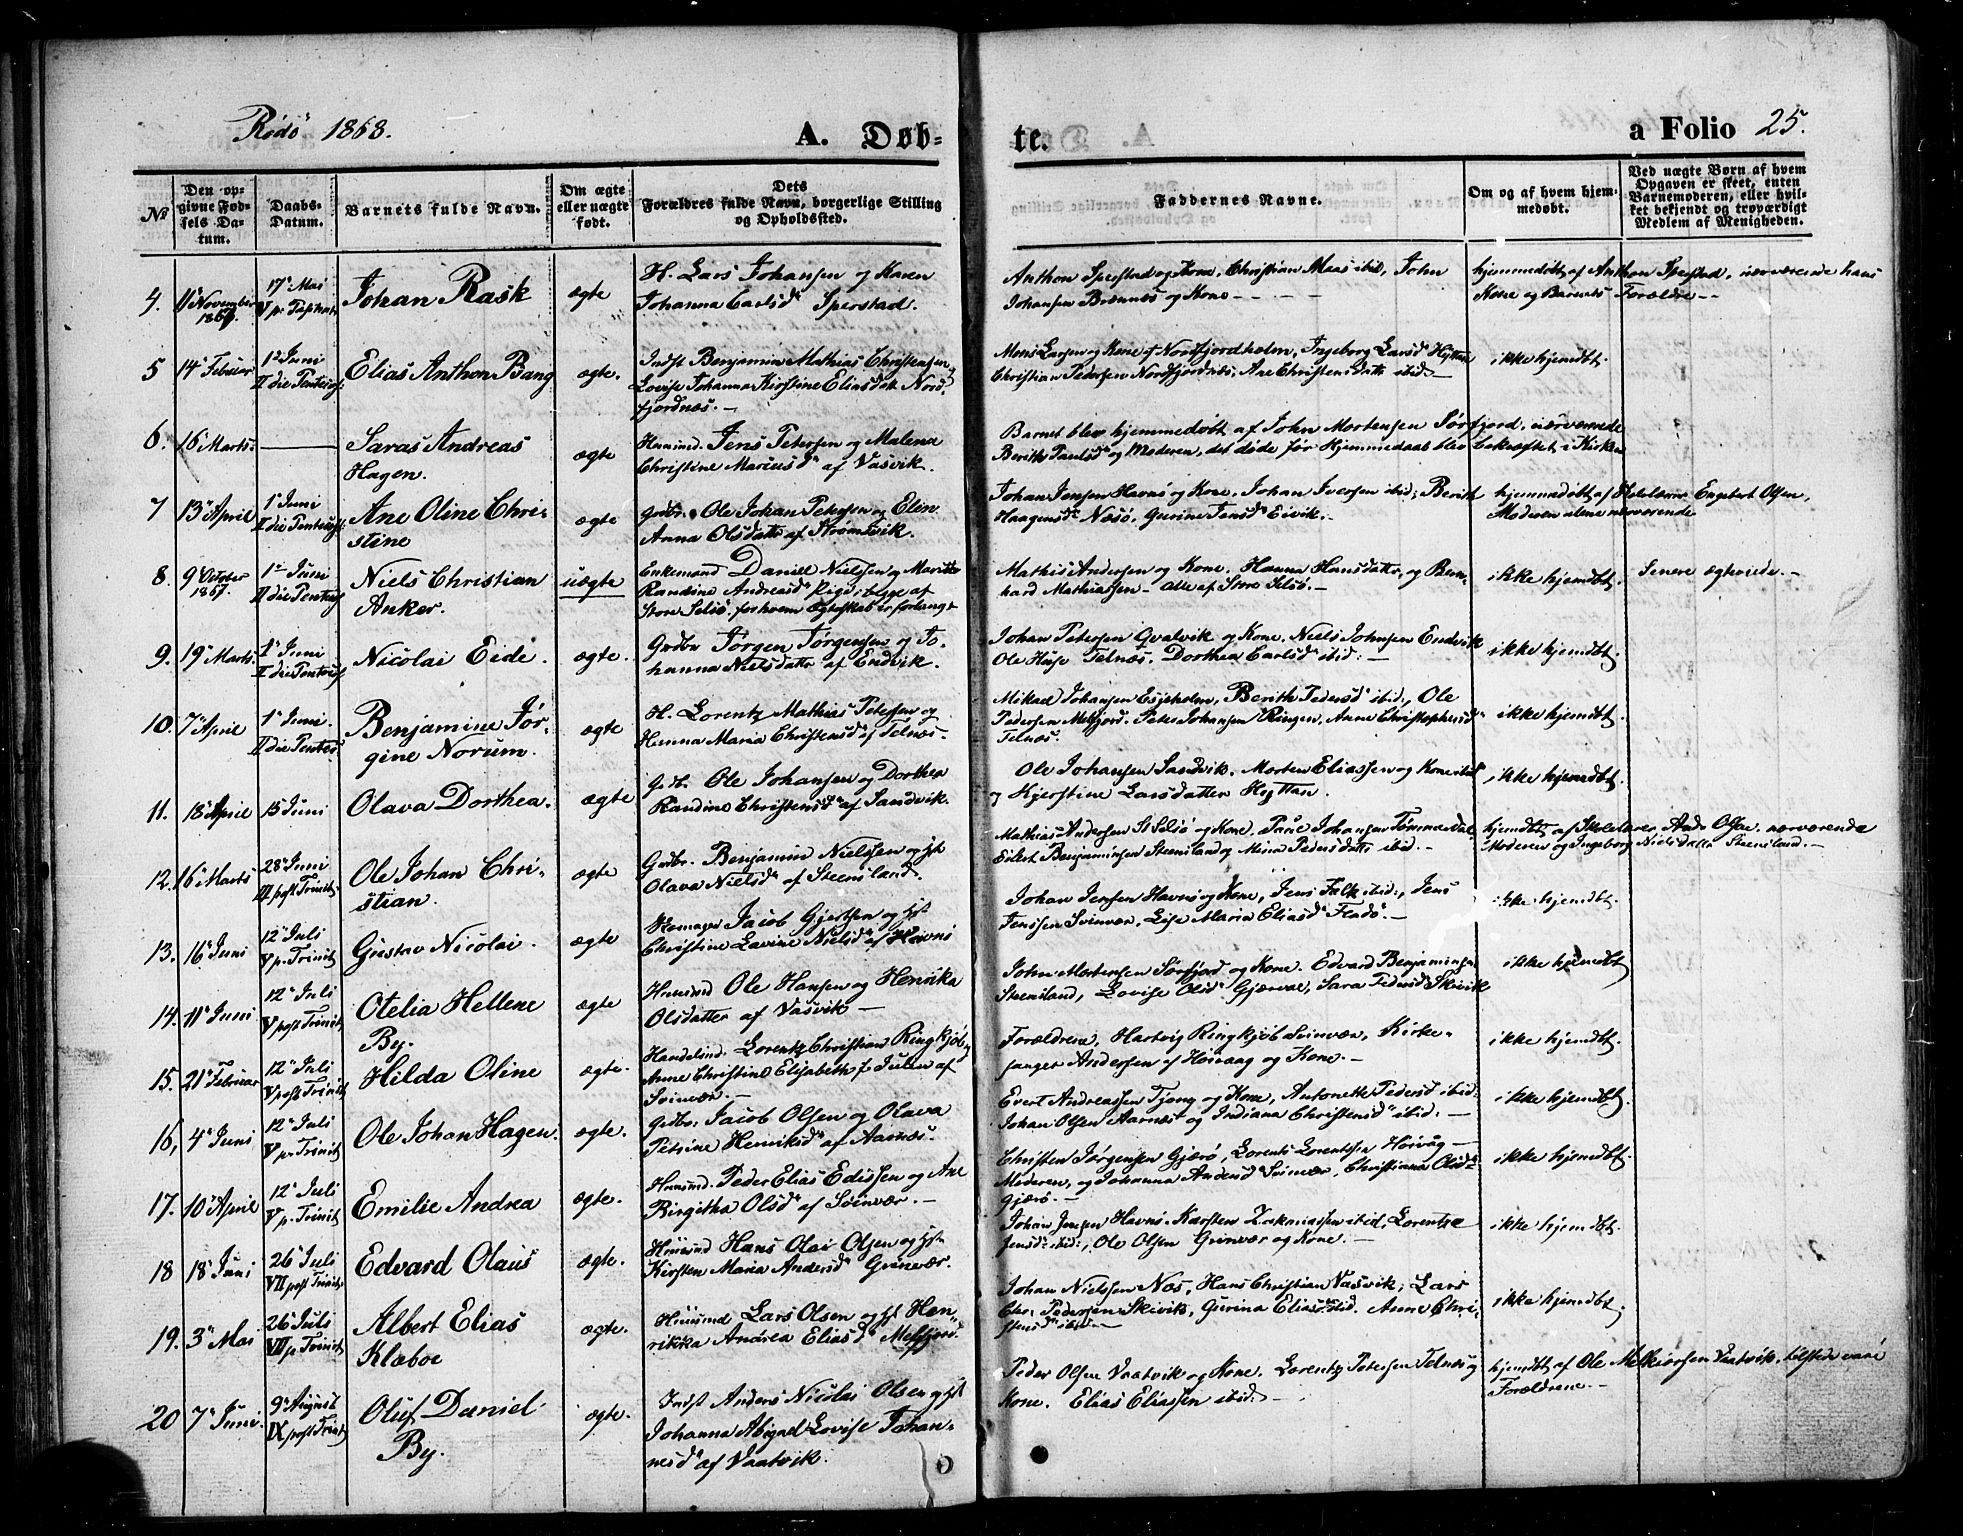 Rödö 1868.
A. Døb-
te.
a Folio 25.
No
Den op-
givne Fød-
sels Da-
tum.
Daabs-
Datum.
Barnets fulde Navn.
Om ægte
eller uægte
født.
Dets
Forældres fulde Navn, borgerlige Stilling
og Opholdssted.
Faddernes Navne.
Om og af hvem hjem-
medøbt.
Ved uægte Børn af hvem
Opgaven er skeet, enten
Barnemoderen, eller hvil-
ket bekjendt og troværdigt
Medlem af Menigheden.
4.
November
1867.
17 Mai
Johan Rask
ægte
H. Lars Johansen og Karen
Johanna Carlsd Sperstad.
Anthon Sperstad og Kone, Christian Maas ibid, John
Johansen Brennæs og Kone
hjemmedøbt af Anthon Sperstad, nærværende hans
Kone og Barnets Forældre
5
14 Februar
1 Juni
II die Pentecost
Elias Anthon Bang
ægte.
Indst Benjamin Mathias Christensen
Lovise Johanna Kirstine Eliasdtr Nord-
fjordnæs.
Mons Larsen og Kone af Nordfjordholm, Ingeborg Larsd Hyttan
Christian Pedersen Nordfjordnæs, Ane Christensdatt ibid.
ikke hjemdøbt.
6.
16 Marts.
Saras Andreas
Hagen.
ægte
Huusmd. Jens Petersen og Malena
Christine Mariusd af Vasvik.
Barnet blev hjemmedøbt af John Mortensen Sørfjord, nærværende
Berith Paulsd og Moderen, det døde før Hjemmedaab blev bekræftet i Kirken
7
13 April
1 Juni
II die Pentecost
Ane Oline Chri-
stine
ægte
Grdbr. Ole Johan Petersen og Elen
Anna Olsdatter af Strømsvik.
Johan Jensen Havnø og Kone, Johan Iversen ibid; Berith
Haagensd Næsø. Gurine Jensd Eivik.
hjemmedøbt af Skolelærer Engebret Olsen,
Moderen alene nærværende
8.
9 October
1867.
1 Juni
II die Pentecost
Niels Christian
Anker.
uægte
Enkemand Daniel Nielsen og
Randine Andreasd Pige, begge af
Store Selsø. for hvem Ægteskab er forlangt
Mathis Andersen og Kone. Hanna Hansdatter, og Bern-
hard Mathiassen alle af Store Selsø.
ikke hjemdøbt.
Senere ægteviede.
9.
19 Marts
1 Juni
II die Pentecost
Nicolai Eide.
ægte.
Grdbr Jørgen Jørgensen og Jo-
hanna Nielsdatter af Endvik.
Johan Petersen Qvalvik og Kone. Niels Johnsen Endvik
Ole Huse Telnæs. Dorthea Carlsd ibid:
ikke hjemdøbt.
10.
7 April
1 Juni.
II die Pentec
Benjamine Jør-
gine Norum.
ægte
H. Lorentz Mathias Petersen og
Hanna Maria Christensd af Telnæs.
Mikael Johansen Esjeholm, Berith Pedersd ibid., Ole
Pedersen Melfjord. Peter Johansen Ringen, Anne Christophersd
Telnæs.
ikke hjemdøbt.
11.
18 April
15 Juni
Olava Dorthea.
ægte
G.H. Ole Johansen og Dorthea
Randine Christensd af Sandvik.
Ole Johansen Sandvik. Morten Eliassen og Kone ibid
og Kjerstine Larsdatter Hyttan.
ikke hjemdøbt.
12.
16 Marts
28 Juni
III post Trinit.
Ole Johan Chri-
stian.
ægte
Grdbr. Benjamin Nielssen og Hst
Olava Nielsd af Steensland.
Mathias Andersen St Selsø og Kone. Johansen Tømmerdal
Eilert Benjaminsen Steensland og Mina Pedersdatt ibid.
hjemdøbt af Skolelærer Ands Olsen, nærværende
Moderen og Ingeborg Nielsdatter Steensland.
13.
16 Juni
12 Juli
V p. Trinit.
Gustav Nicolai.
ægte
Jacob Gjertsen og Hst
Christine Lavine Nielsd af Havnø
Johan Jensen Havnø og Kone, Jens Falk ibid:, Jens
Jenssen Svinvær, Lise Maria Eliasd Fladø.
ikke hjemdøbt.
14.
11 Juni
12 Juli
V post Trinit.
Otelia Hellene
By.
ægte
Huusmd Ole Hansen og Henrika
Olsdatter af Vasvik
John Mortensen Sørfjord og Kone. Edvard Benjaminsen
Steensland, Lovise Olsd Gjærvæ, Sara Pedersd Skivik
ikke hjemdøbt
15.
21 Februar
12 Juli
V post Trinit.
Hilda Oline
ægte.
Handelsmd. Lorentz Christian Ringkjøb og
Anne Christine Elisabeth f. Juten af
Svinvær.
Forældrene, Hartvig Ringkjøb Svinvær, Kirke-
sanger Andersen af Høivaag og Kone.
ikke hjemdøbt.
16,
4 Juni
12 Juli
V p. Trinit
Ole Johan Hagen.
ægte.
Grdbr. Jacob Olsen og Olava
Petrine Henriksd af Aarnæs.
Evert Andreassen Tjong og Kone, Antonette Pedersd ibid.
Johan Olsen Aarnæs og Indiana Christensd ibid:
ikke hjemdøbt.
17.
10 April
12 Juli
V p. Trinit
Emilie Andrea
ægte.
Huusmd. Peder Elias Edissen og Ane
Birgitha Olsd af Svinvær.
Christen Jørgensen Gjærø, Lorents Lorentssen Høivåg
Moderen, og Johanna Andersd Svinvær, Christianna Olsd
Gjærø.
ikke hjemdøbt.
18
18 Juni
26 Juli
VII post Trinit.
Edvard Olaus
ægte.
Huusmd Hans Olai Olsen og Hst.
Kirsten Maria Andersd Grinvær.
Johan Jensen Havnø. Karsten Zakariassen ibid, Lorentze
Jensd: ibid:, Ole Olsen Grinvær og Kone.
ikke hjemdøbt.
19.
3 Mai
26 Juli
VII p. Trinit
Albert Elias
Klæboe
ægte.
Huusmd Lars Olsen og Hst Hen-
rikka Andrea Eliasd Melfjord.
Johan Nielssen Næs, Hans Christian Vasvik, Lars
Chr. Pedersen Skivik, Gurina Eliasd ibid. Anne Chri-
stensd ibid
ikke hjemdøbt.
20
7 Juni.
9 August
IX post Trinit
Oluf Daniel
By.
ægte.
Indst Anders Nicolai Olsen og Hst
Johanna Abigael Lovise Johan-
nesd af Vaatvik.
Peder Olsen Vaatvik og Kone. Lorentz Petersen Telnæs og
Kone. Elias Eliassen ibid.
hjemdøbt af Ole Melkiorsen Vaatvik, tilstede vare
Forældrene.